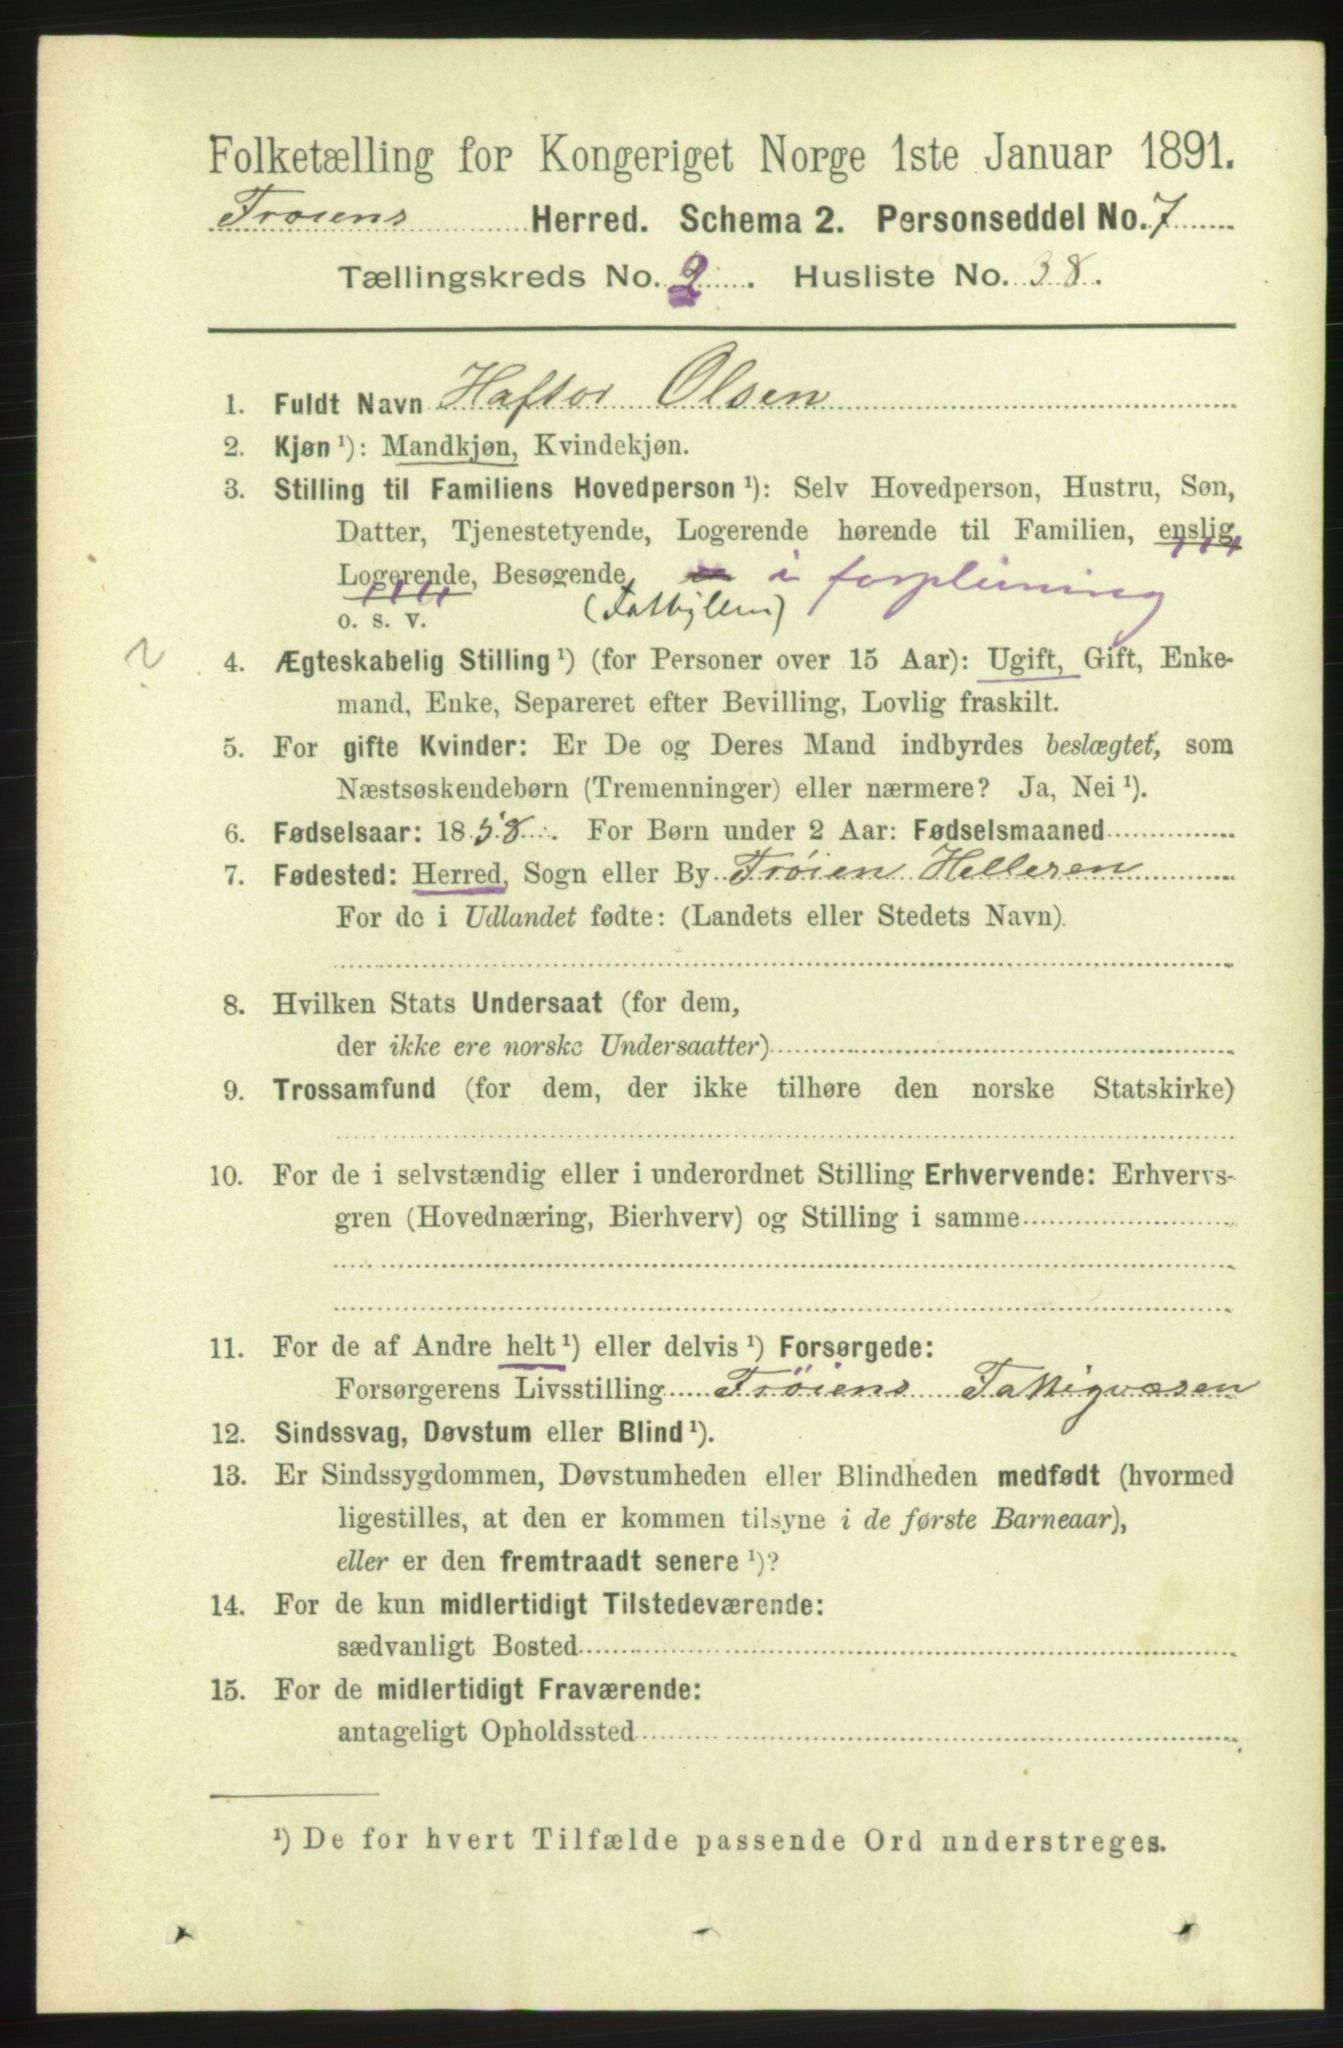 Folketælling for Kongeriget Norge 1ste Januar 1891.
Trøiens Herred. Schema 2. Personseddel No. 7
Tællingskreds No. 2. Husliste No. 38.
1. Fuldt Navn Haftor Olsen
2. Kjøn ¹): Mandkjøn, Kvindekjøn.
3. Stilling til Familiens Hovedperson ¹): Selv Hovedperson, Hustru, Søn,
Datter, Tjenestetyende, Logerende hørende til Familien, enslig
Logerende, Besøgende, i forpleining
o. s. v. (Fattiglem)
4. Ægteskabelig Stilling ¹) (for Personer over 15 Aar): Ugift, Gift, Enke-
mand, Enke, Separeret efter Bevilling, Lovlig fraskilt.
5. For gifte Kvinder: Er De og Deres Mand indbyrdes beslægtet, som
Næstsøskendebørn (Tremenninger) eller nærmere? Ja, Nei ¹).
6. Fødselsaar: 1858. For Børn under 2 Aar: Fødselsmaaned
7. Fødested: Herred, Sogn eller By Trøien Helleren
For de i Udlandet fødte: (Landets eller Stedets Navn).
8. Hvilken Stats Undersaat (for dem,
der ikke ere norske Undersaatter)
9. Trossamfund (for dem, der ikke tilhøre den norske Statskirke)
10. For de i selvstændig eller i underordnet Stilling Erhvervende: Erhvervs-
gren (Hovednæring, Bierhverv) og Stilling i samme
11. For de af Andre helt ¹) eller delvis ¹) Forsørgede:
Forsørgerens Livsstilling Trøiens Fattigvæsen
12. Sindssvag, Døvstum eller Blind ¹).
13. Er Sindssygdommen, Døvstumheden eller Blindheden medfødt (hvormed
ligestilles, at den er kommen tilsyne i de første Barneaar),
eller er den fremtraadt senere ¹)?
14. For de kun midlertidigt Tilstedeværende:
sædvanligt Bosted
15. For de midlertidigt Fraværende:
antageligt Opholdssted
¹) De for hvert Tilfælde passende Ord understreges.